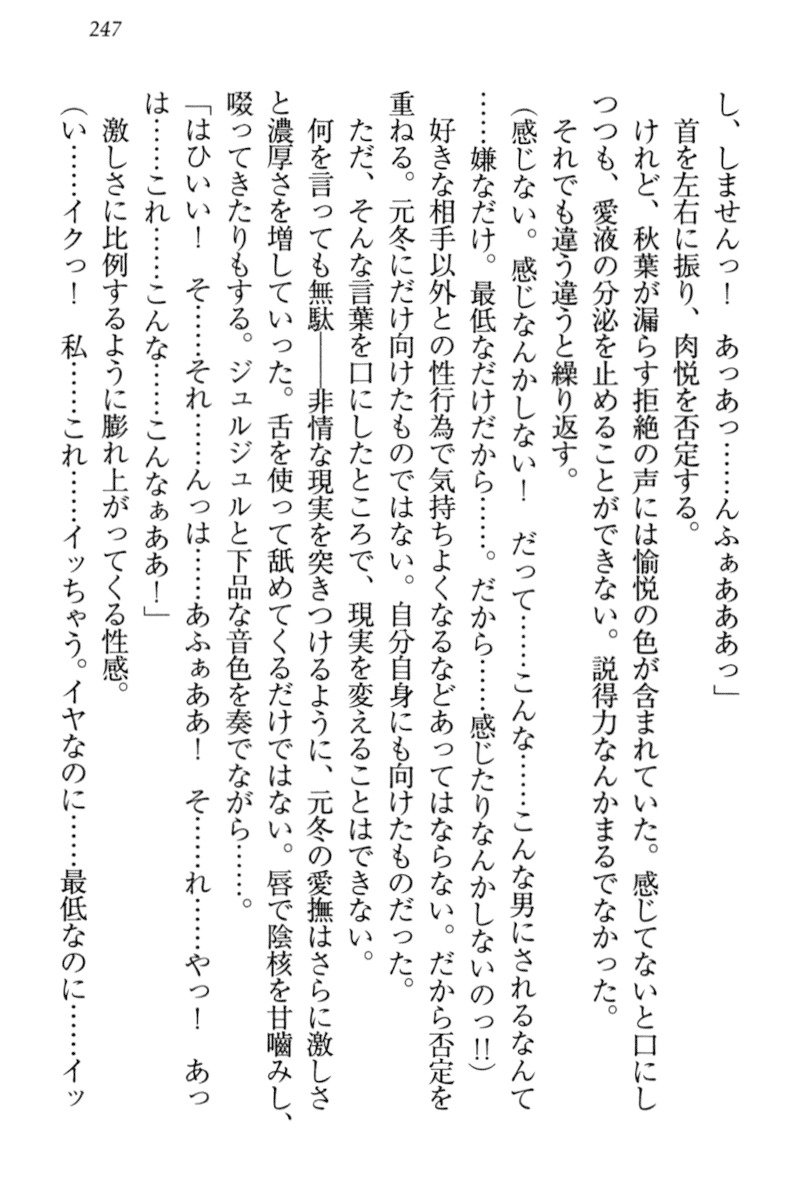 247
し、しませんっ！　あっあっ……んふぁあああっ」
　首を左右に振り、肉悦を否定する。
　けれど、秋葉が漏らす拒絶の声には愉悦の色が含まれていた。感じてないと口にし
つつも、愛液の分泌を止めることができない。説得力なんかまるでなかった。
　それでも違う違うと繰り返す。
（感じない。感じなんかしない！　だって……こんな……こんな男にされるなんて
……嫌なだけ。最低なだけだから……。だから……感じたりなんかしないのっ!!）
　好きな相手以外との性行為で気持ちよくなるなどあってはならない。だから否定を
重ねる。元冬にだけ向けたものではない。自分自身にも向けたものだった。
　ただ、そんな言葉を口にしたところで、現実を変えることはできない。
　何を言っても無駄――非情な現実を突きつけるように、元冬の愛撫はさらに激しさ
と濃厚さを増していった。舌を使って舐めてくるだけではない。唇で陰核を甘嚙みし、
啜ってきたりもする。ジュルジュルと下品な音色を奏でながら……。
「はひいい！　そ……それ……んっは……あふぁああ！　そ……れ……やっ！　あっ
は……これ……こんな……こんなぁああ！」
　激しさに比例するように膨れ上がってくる性感。
（い……イクっ！　私……これ……イッちゃう。イヤなのに……最低なのに……イッ